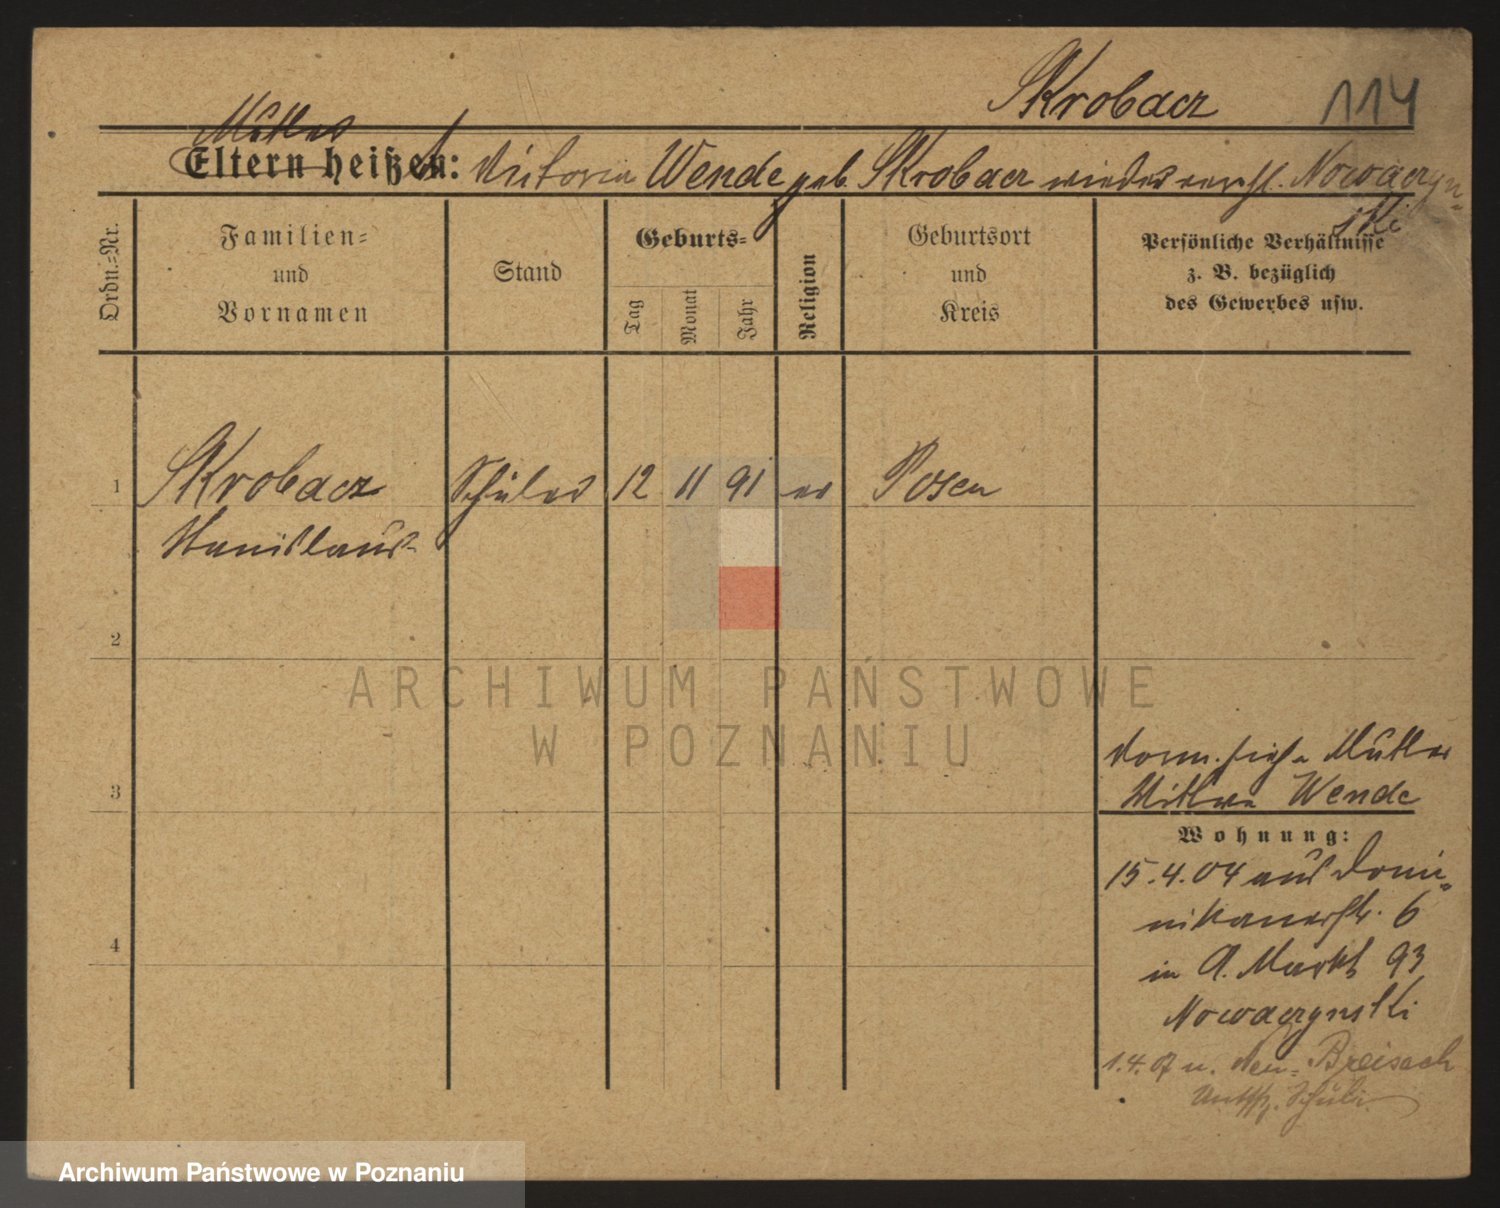 Skrobacz 114
Mutter
Eltern heißen: Victoria Wende geb. Skrobacz wieder verehl. Nowaczyn=
ski
Ordn.=Nr.
Familien=
und
Vornamen
Stand
Geburts=
Tag
Monat
Jahr
Religion
Geburtsort
und
Kreis
Persönliche Verhältnisse
z. B. bezüglich
des Gewerbes usw.
1 Skrobacz Schüler 12 11 91 Posen
Stanislaus
2
3
4
ARCHIWUM PAŃSTWOWE
W POZNANIU
Dom. siehe Mutter
Witwe Wende
Wohnung:
15.4.04 aus Domi=
nikanerstr. 6
in A. Markt 93
Nowaczynski
1.4.07 n. Neu=Breisach
Schüler
Archiwum Państwowe w Poznaniu